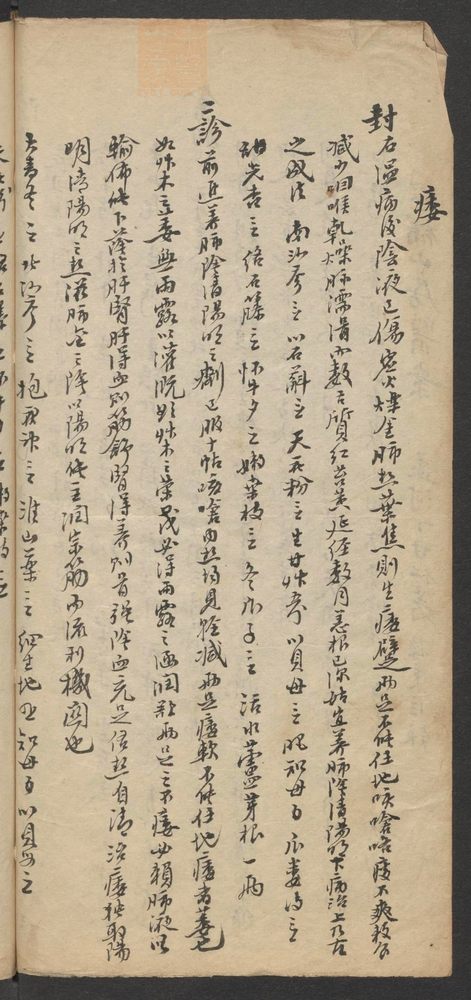 痿
封右 温病後陰液已傷虛火爍金肺熱葉焦則生痿躄兩足不能任地咳嗆咯痰不爽
減少回喉乾燥脈濡滑而數舌質紅苔黃延經數月恙根已深姑宜養肺陰清陽明下病治上乃古
之成法 南沙參三 川石斛三 天花粉三 生甘草 川貝母三 肥知母 瓜蔞 三
甜光杏三 絡石藤三 怀牛夕二 嫩桑枝三 冬瓜子三 活水蘆芽根一兩
二診 前進養肺陰清陽明之劑已服十帖咳嗆內熱均見輕減兩足痿軟不能任地痿者萎也
如草木之萎無雨露以灌溉欲草木之榮茂必得雨露之濡潤欲兩足之不痿必賴肺液以
輸佈能下蔭於肝腎肝得血則筋舒腎得養則骨強陰血充足絡熱自清治痿獨取陽
明清陽明之熱滋肺金之陰以陽明能主潤宗筋而流利機關也
大麥冬三 北沙參三 抱茯神三 淮山藥三 細生地 知母 川貝母三